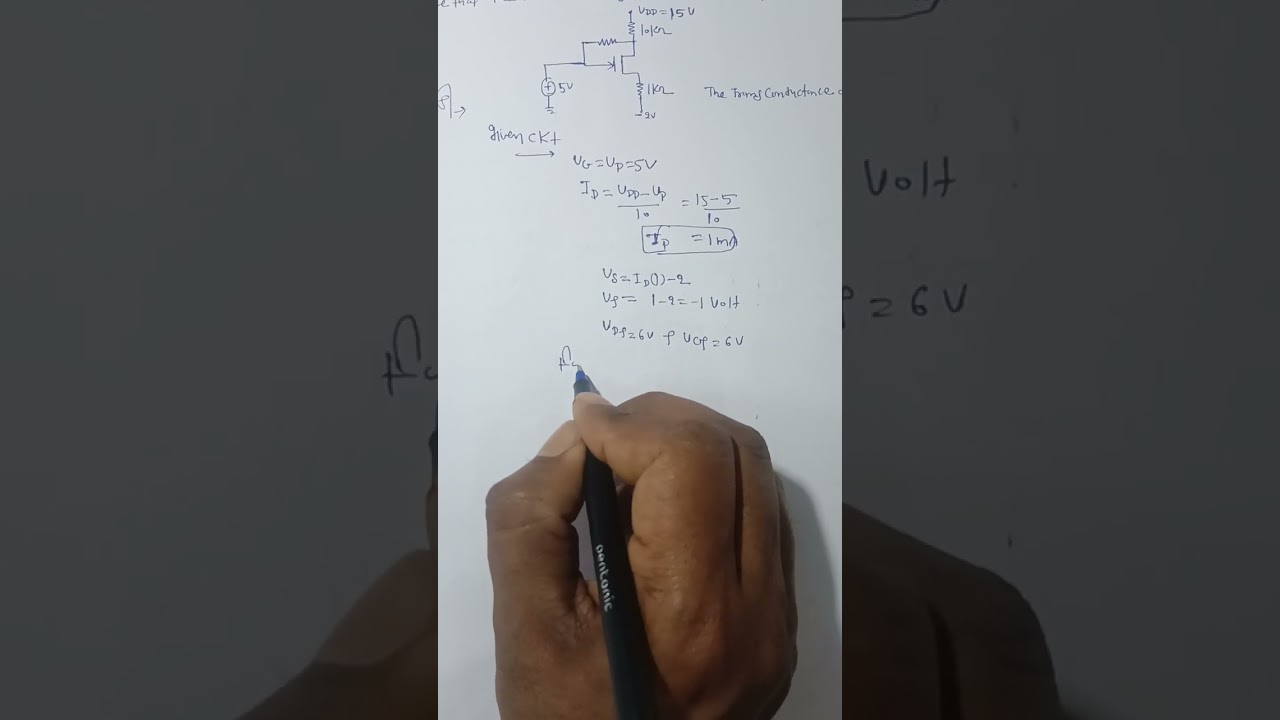 VDD = 15V
10KΩ
5V
1KΩ
The Transconductance
-2V
given CKt
VG = VD = 5V
ID = VDD - VD / 10 = 15 - 5 / 10
ID = 1mA
VS = ID(1) - 2
VS = 1 - 2 = -1 Volt
VDS = 6V & VGS = 6V
Volt
= 6V
pentonic